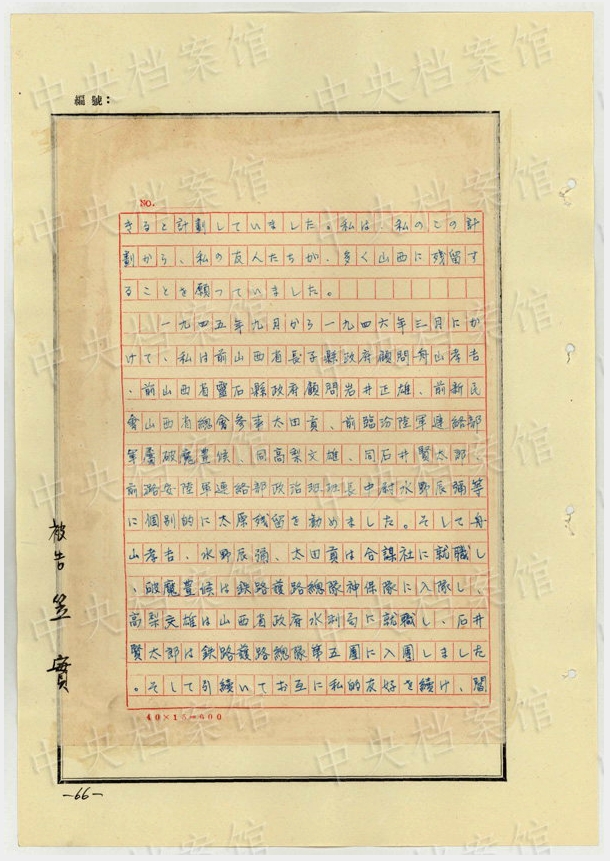 編號：
NO.
きると計劃していました。私は、私のこの計
劃から、私の友人たちが、多く山西に残留す
ることを願っていました。
一九四五年九月から一九四六年三月にか
けて、私は前山西省長子縣政府顧問舟山孝吉
、前山西省靈石縣政府顧問岩井正雄、前新民
會山西省總會參事太田貢、前臨汾陸軍連絡部
軍屬破魔豊候、同高梨文雄、同石井賢太郎、
前潞安陸軍連絡部政治班班長中尉水野辰彌等
に個別的に太原残留を勧めました。そして舟
山孝吉、水野辰彌、太田貢は合謀社に就職し
、破魔豊候は鉄路護路總隊神保隊に入隊し、
高梨文雄は山西省政府水利局に就職し、石井
賢太郎は鉄路護路總隊第五團に入團しました
。そして引続いてお互に私的友好を続け、閻
40×15=600
被告 笠 實
-66-
中央档案馆